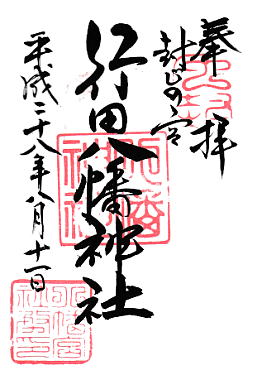 奉拝
封じの宮
行田八幡神社
平成二十八年八月十一日